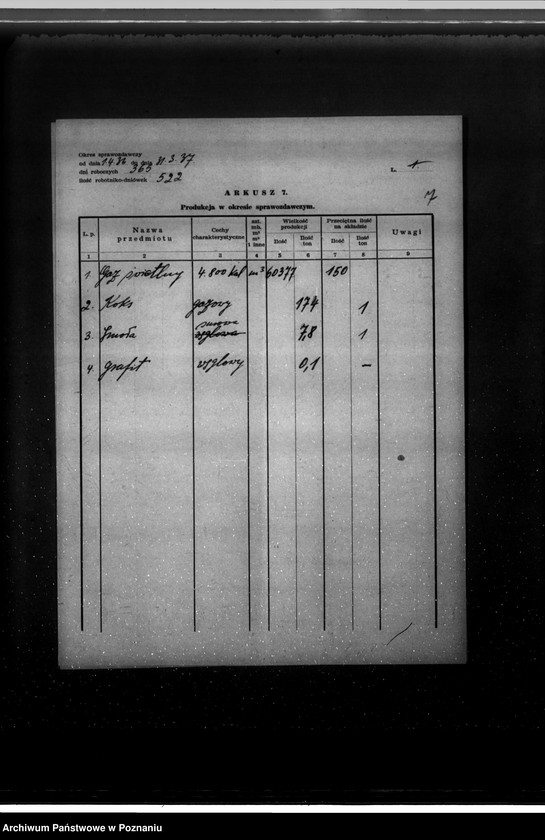 Okres sprawozdawczy
od dnia 1.4.36 do dnia 31.3.37
dni roboczych 365
ilość robotniko-dniówek 522
L. 1.
7
ARKUSZ 7.
Produkcja w okresie sprawozdawczym.
L. p. Nazwa przedmiotu Cechy charakterystyczne szt. mb. m² m³ i inne Wielkość produkcji Ilość Ilość ton Przeciętna ilość na składzie Ilość Ilość ton Uwagi
1 2 3 4 5 6 7 8 9
1. Gaz świetlny 4.800 kal m³ 60377 150
2. Koks gazowy 174 1
3. Smoła surowa węglowa 7,8 1
4. grafit węglowy 0,1 —
Archiwum Państwowe w Poznaniu